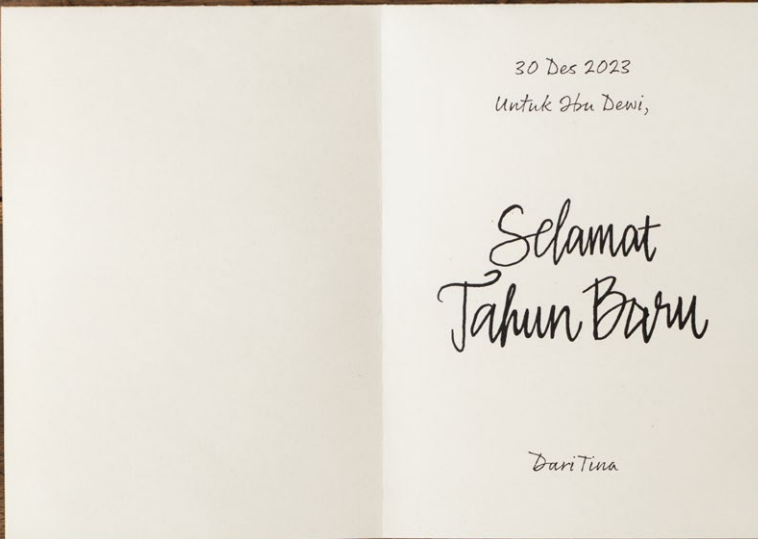 30 Des 2023
Untuk Ibu Dewi,
Selamat
Tahun Baru
Dari Tina